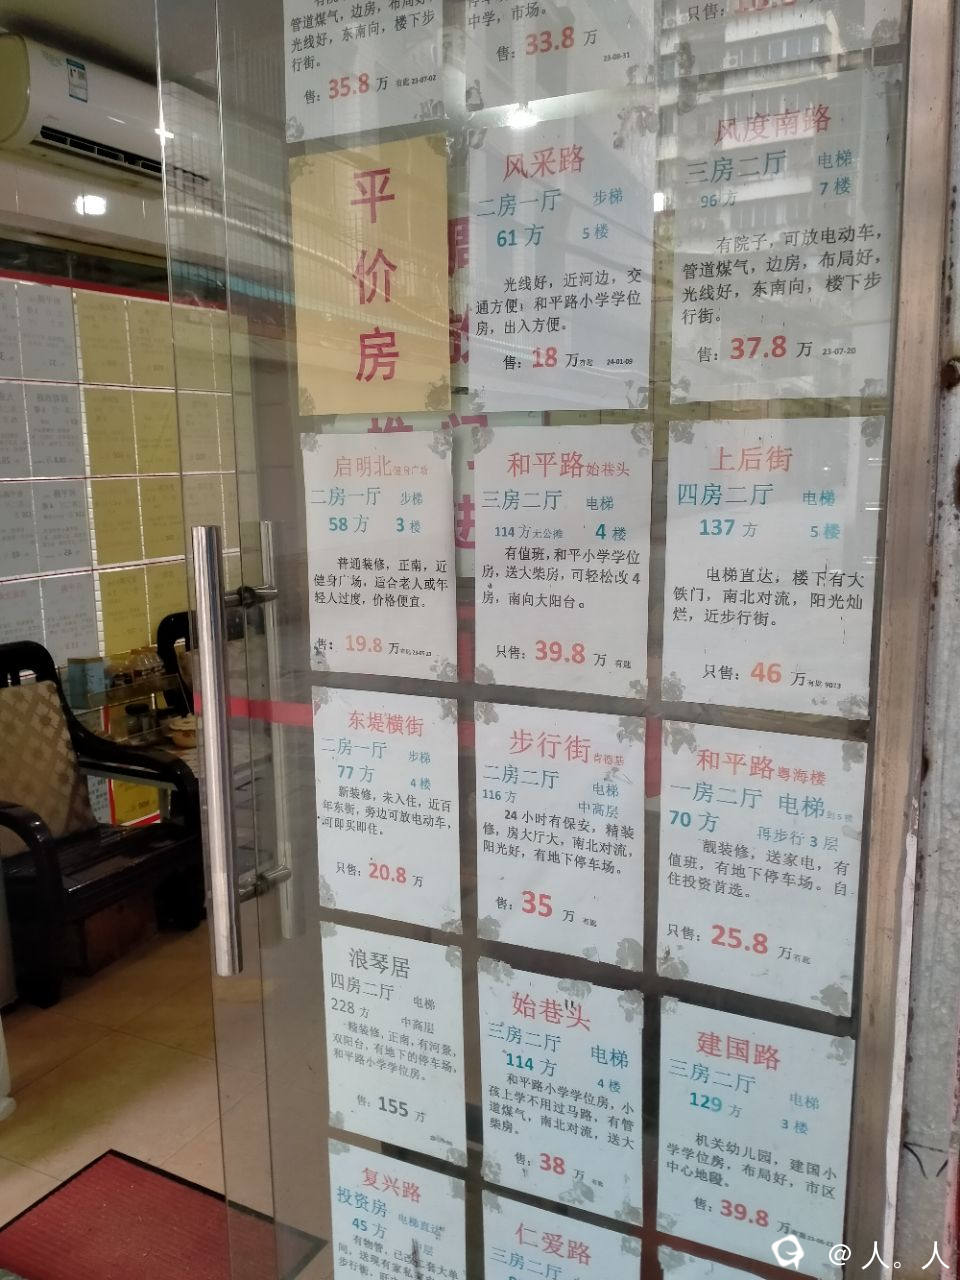 管道煤气，边房，布局好，
光线好，东南向，楼下步
行街。
售：35.8 万 有匙 23-07-02
中学，市场。
售：33.8 万
23-08-31
只售：
平
价
房
风采路
二房一厅 步梯
61 方 5 楼
光线好，近河边，交
通方便，和平路小学学位
房，出入方便。
售：18 万 有匙 24-01-09
风度南路
三房二厅 电梯
96 方 7 楼
有院子，可放电动车，
管道煤气，边房，布局好，
光线好，东南向，楼下步
行街。
售：37.8 万 23-07-20
启明北 健身广场
二房一厅 步梯
58 方 3 楼
普通装修，正南，近
健身广场，适合老人或年
轻人过度，价格便宜。
售：19.8 万
和平路 始巷头
三房二厅 电梯
114 方 无公摊 4 楼
有值班，和平小学学位
房，送大柴房，可轻松改 4
房，南向大阳台。
只售：39.8 万 有匙
上后街
四房二厅 电梯
137 方 5 楼
电梯直达，楼下有大
铁门，南北对流，阳光灿
烂，近步行街。
只售：46 万 有匙
东堤横街
二房一厅 步梯
77 方 4 楼
新装修，未入住，近百
年东街，旁边可放电动车，
可即买即住。
只售：20.8 万
步行街 肯德基
二房二厅 电梯
116 方 中高层
24 小时有保安，精装
修，房大厅大，南北对流，
阳光好，有地下停车场。
售：35 万 有匙
和平路 粤海楼
一房二厅 电梯 到 5 楼
70 方 再步行 3 层
靓装修，送家电，有
值班，有地下停车场。自
住投资首选。
只售：25.8 万 有匙
浪琴居
四房二厅 电梯
228 方 中高层
精装修，正南，有河景，
双阳台，有地下的停车场，
和平路小学学位房。
售：155 万
始巷头
三房二厅 电梯
114 方 4 楼
和平路小学学位房，小
孩上学不用过马路，有管
道煤气，南北对流，送大
柴房。
售：38 万 有匙
建国路
三房二厅 电梯
129 方 3 楼
机关幼儿园，建国小
学学位房，布局好，市区
中心地段。
售：39.8 万
复兴路
投资房 电梯直达
45 方
有物管，
间，送现有家私
步行街，
仁爱路
三房二厅
@人。人